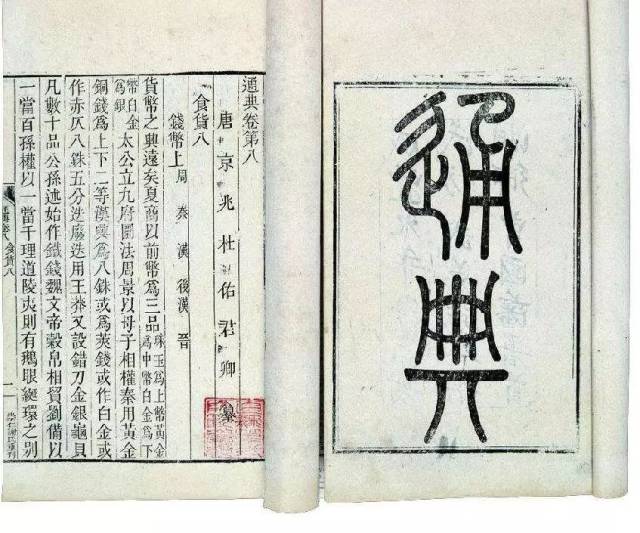 通典
通典卷第八
唐京兆杜佑君卿纂
食貨八
錢幣上 周 秦 漢 後漢 晉
貨幣之興遠矣夏商以前幣爲三品珠玉爲上幣黃金爲中幣白金爲下
幣白金爲銀太公立九府圜法周景以母子相權秦用黃金
銅錢爲上下二等漢興爲八銖或爲莢錢或作白金或
作赤仄八銖五分迭廢迭用王莽又設錯刀金銀龜貝
凡數十品公孫述始作鐵錢魏文帝穀帛相貿劉備以
一當百孫權以一當千理道陵夷則有鵝眼綖環之別